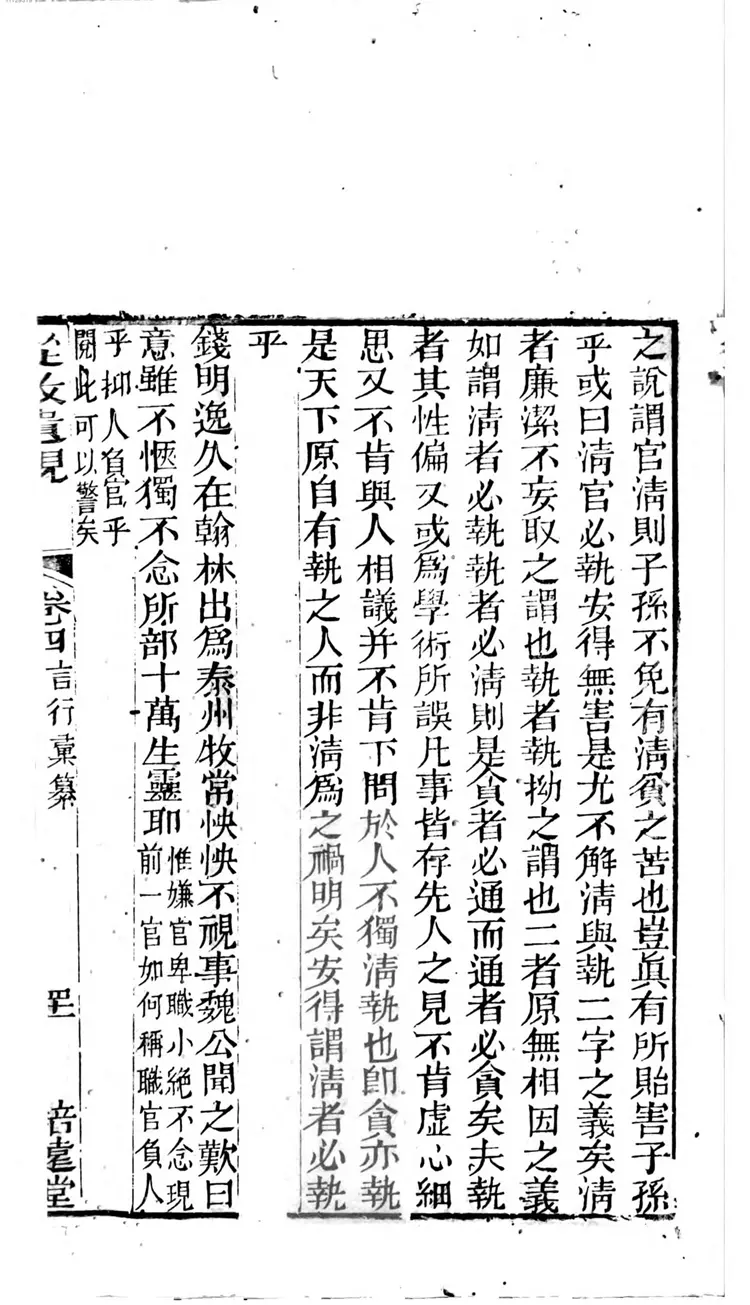 之說謂官淸則子孫不免有淸貧之苦也豈眞有所貽害子孫
乎或曰淸官必執安得無害是尤不解淸與執二字之義矣淸
者廉潔不妄取之謂也執者執拗之謂也二者原無相因之義
如謂淸者必執執者必淸則是貪者必通而通者必貪矣夫執
者其性偏又或爲學術所誤凡事皆存先人之見不肯虛心細
思又不肯與人相議并不肯下問於人不獨淸執也卽貪亦執
是天下原自有執之人而非淸爲之禍明矣安得謂淸者必執
乎
錢明逸久在翰林出爲泰州牧常怏怏不視事魏公聞之歎曰
意雖不愜獨不念所部十萬生靈耶
惟嫌官卑職小絶不念現
前一官如何稱職官負人
乎抑人負官乎
閱此可以警矣
從政遺規
卷四言行彙纂
培遠堂